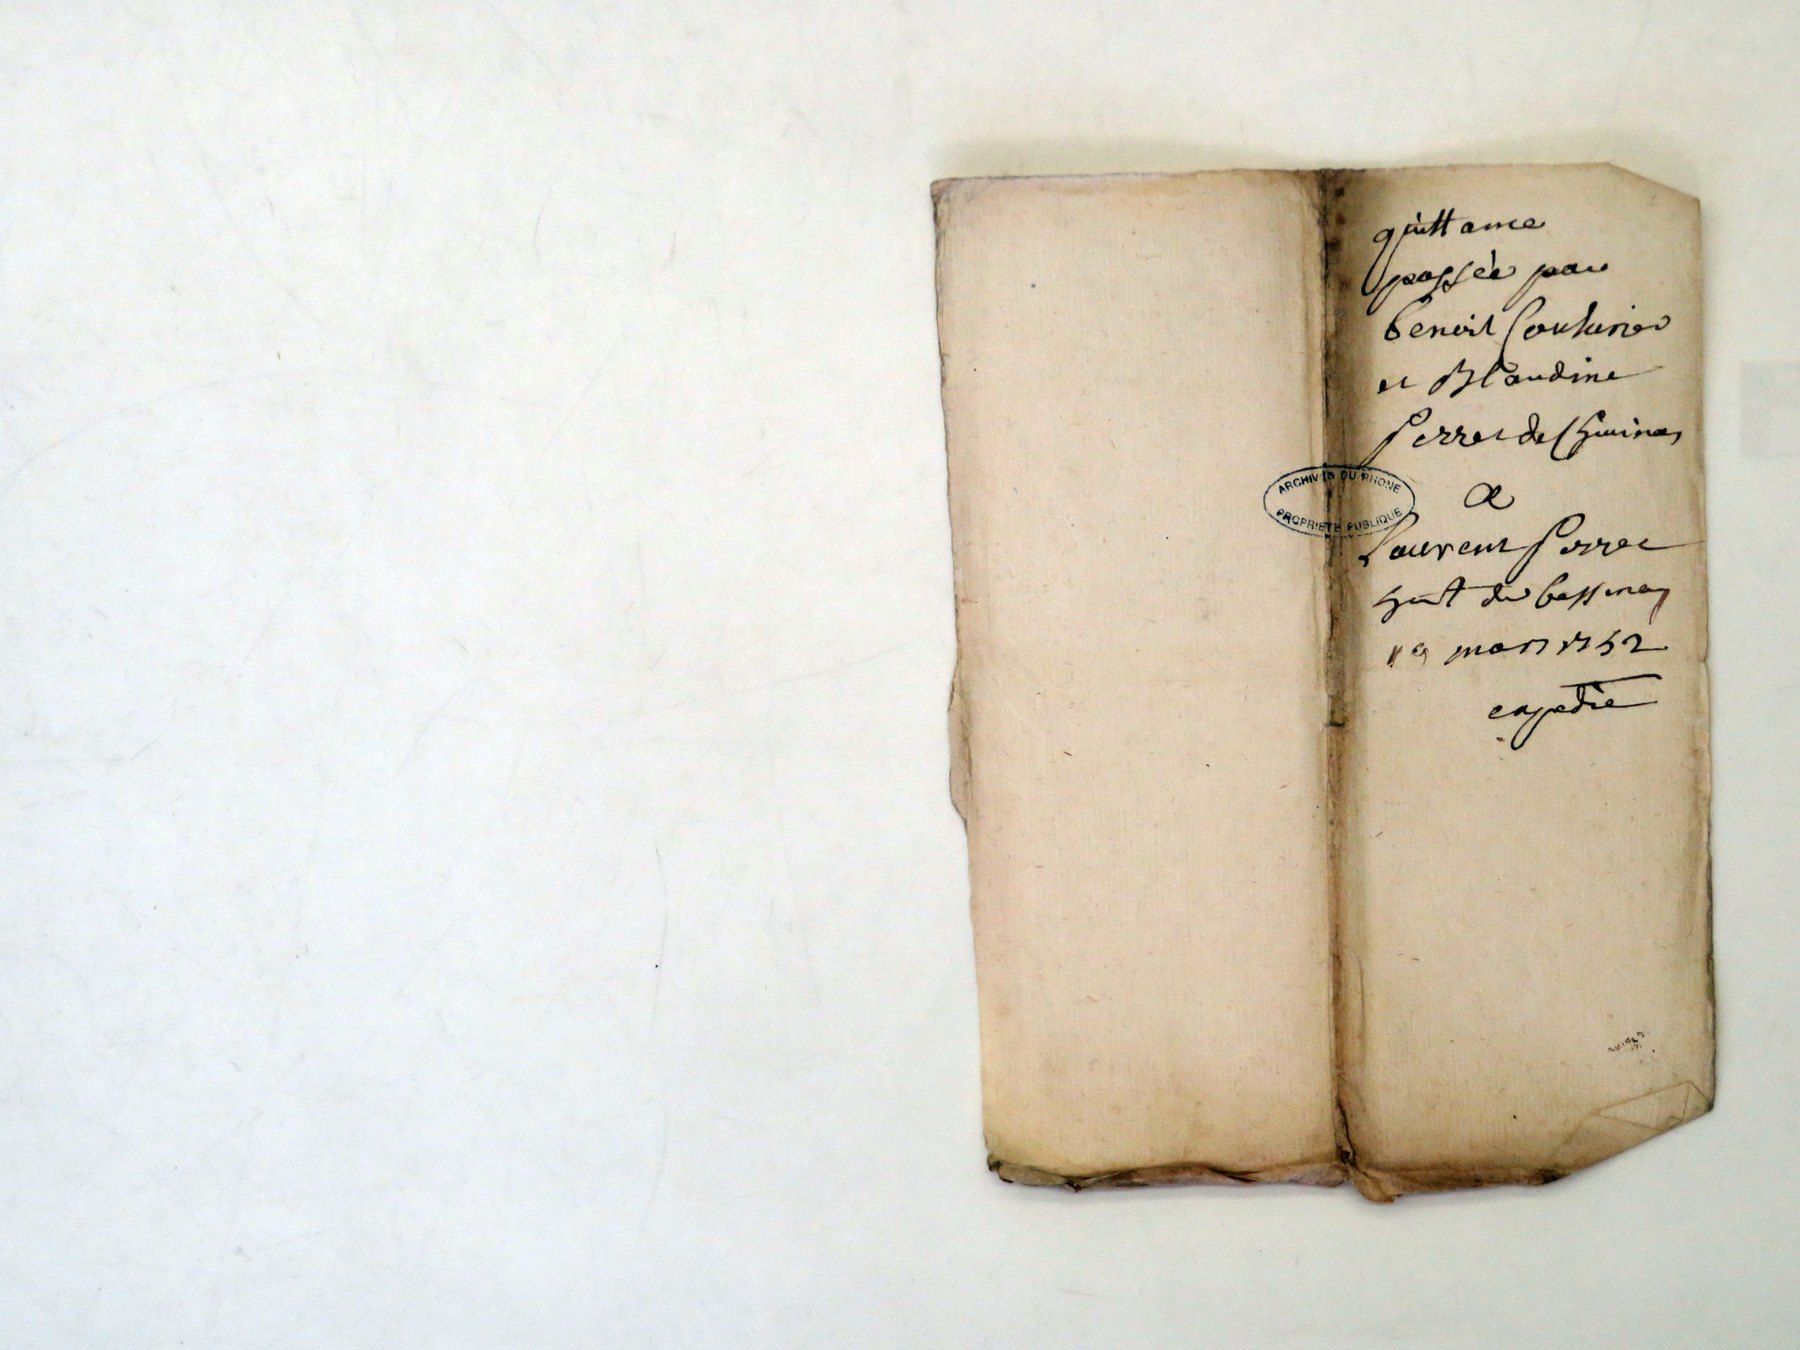 quittance
passée par
benoit Couturier
et Blandine
Perret de
a
Laurent Perret
du bessenay
19 mars 1752
expedié
ARCHIVES DU RHONE
PROPRIETE PUBLIQUE